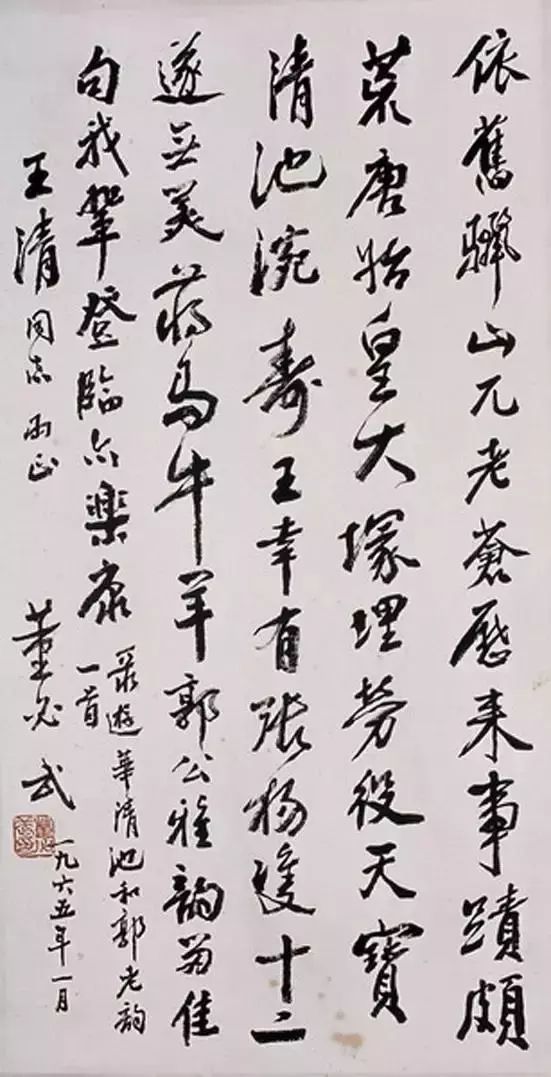 依舊驪山兀老蒼歷来事蹟頗
荒唐始皇大塚埋勞役天寳
清池涴壽王幸有張楊雙十二
遂無美蔣馬牛羊郭公雅韻留佳
句我輩登臨亦樂康
遊華清池和郭老韻
一首
王清同志正
董必武
一九六五年一月